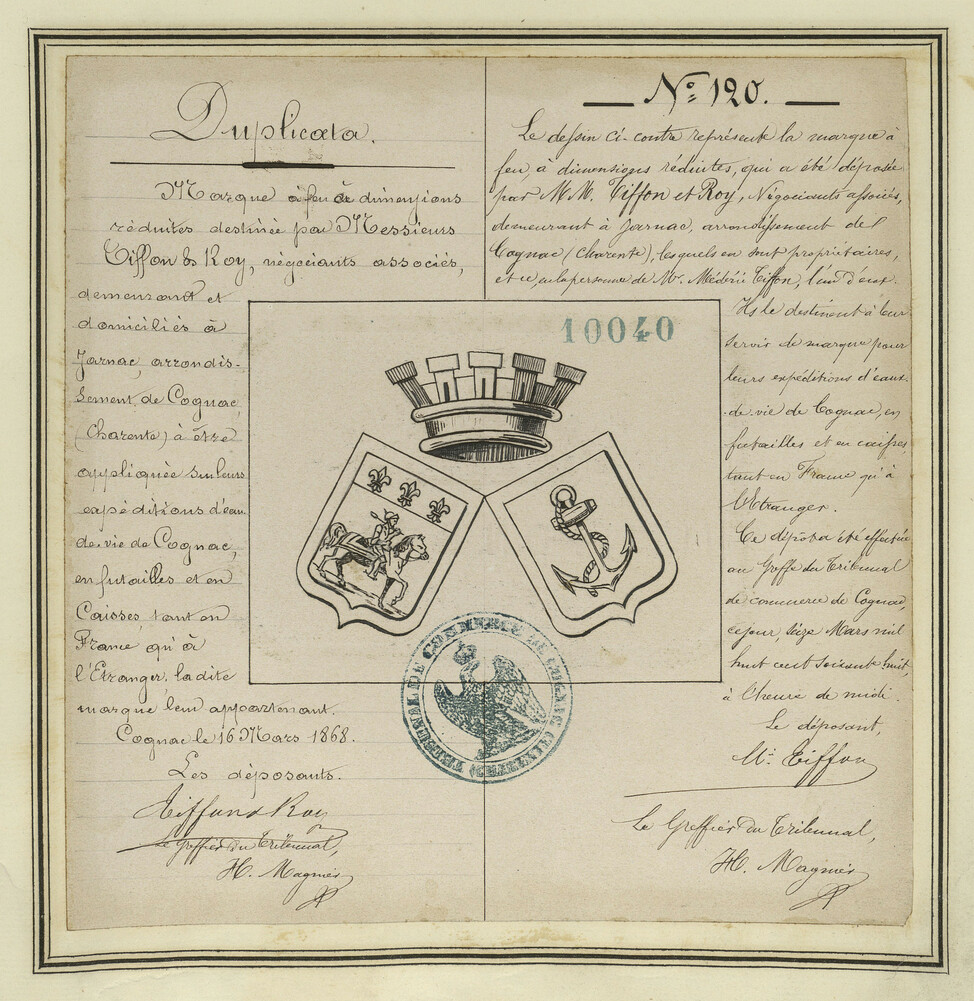 Duplicata.
Marque à feu de dimensions
réduites destinée par Messieurs
Tiffon & Roy, négociants associés,
demeurant et
domiciliés à
Jarnac, arrondis-
sement de Cognac
(Charente) à être
appliquée sur leurs
expéditions d'eau
de vie de Cognac,
en futailles et en
Caisses, tant en
France qu'à
l'Etranger, la dite
marque leur appartenant.
Cognac le 16 Mars 1868.
Les déposants.
Tiffon & Roy
Le Greffier du Tribunal,
H. Magnier
N° 120.
Le dessin ci-contre représente la marque à
feu, à dimensions réduites, qui a été déposée
par M.M. Tiffon et Roy, Négociants associés,
demeurant à Jarnac, arrondissement de
Cognac (Charente), lesquels en sont propriétaires,
et ce, en la personne de Mr. Médéric Tiffon, l'un d'eux.
Ils le destinent à leur
servir de marque pour
leurs expéditions d'eaux-
de-vie de Cognac, en
futailles et en caisses,
tant en France qu'à
l'Etranger.
Ce dépôt a été effectué
au Greffe du Tribunal
de commerce de Cognac,
ce jour, seize Mars mil
huit cent soixante huit,
à l'heure de midi.
Le déposant,
Mc. Tiffon
Le Greffier du Tribunal,
H. Magnier
10040
TRIBUNAL DE COMMERCE DE COGNAC (CHARENTE)